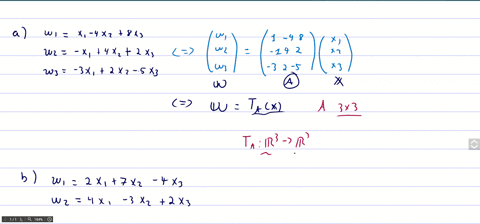 a) w₁ = x₁ - 4x₂ + 8x₃
w₂ = -x₁ + 4x₂ + 2x₃
w₃ = -3x₁ + 2x₂ - 5x₃
<=> (w₁ w₂ w₃) = (1 -4 8 -1 4 2 -3 2 -5) (x₁ x₂ x₃)
w A x
<=> w = T_A(x) A 3x3
T_A: ℝ³ -> ℝ³
b) w₁ = 2x₁ + 7x₂ - 4x₃
w₂ = 4x₁ - 3x₂ + 2x₃